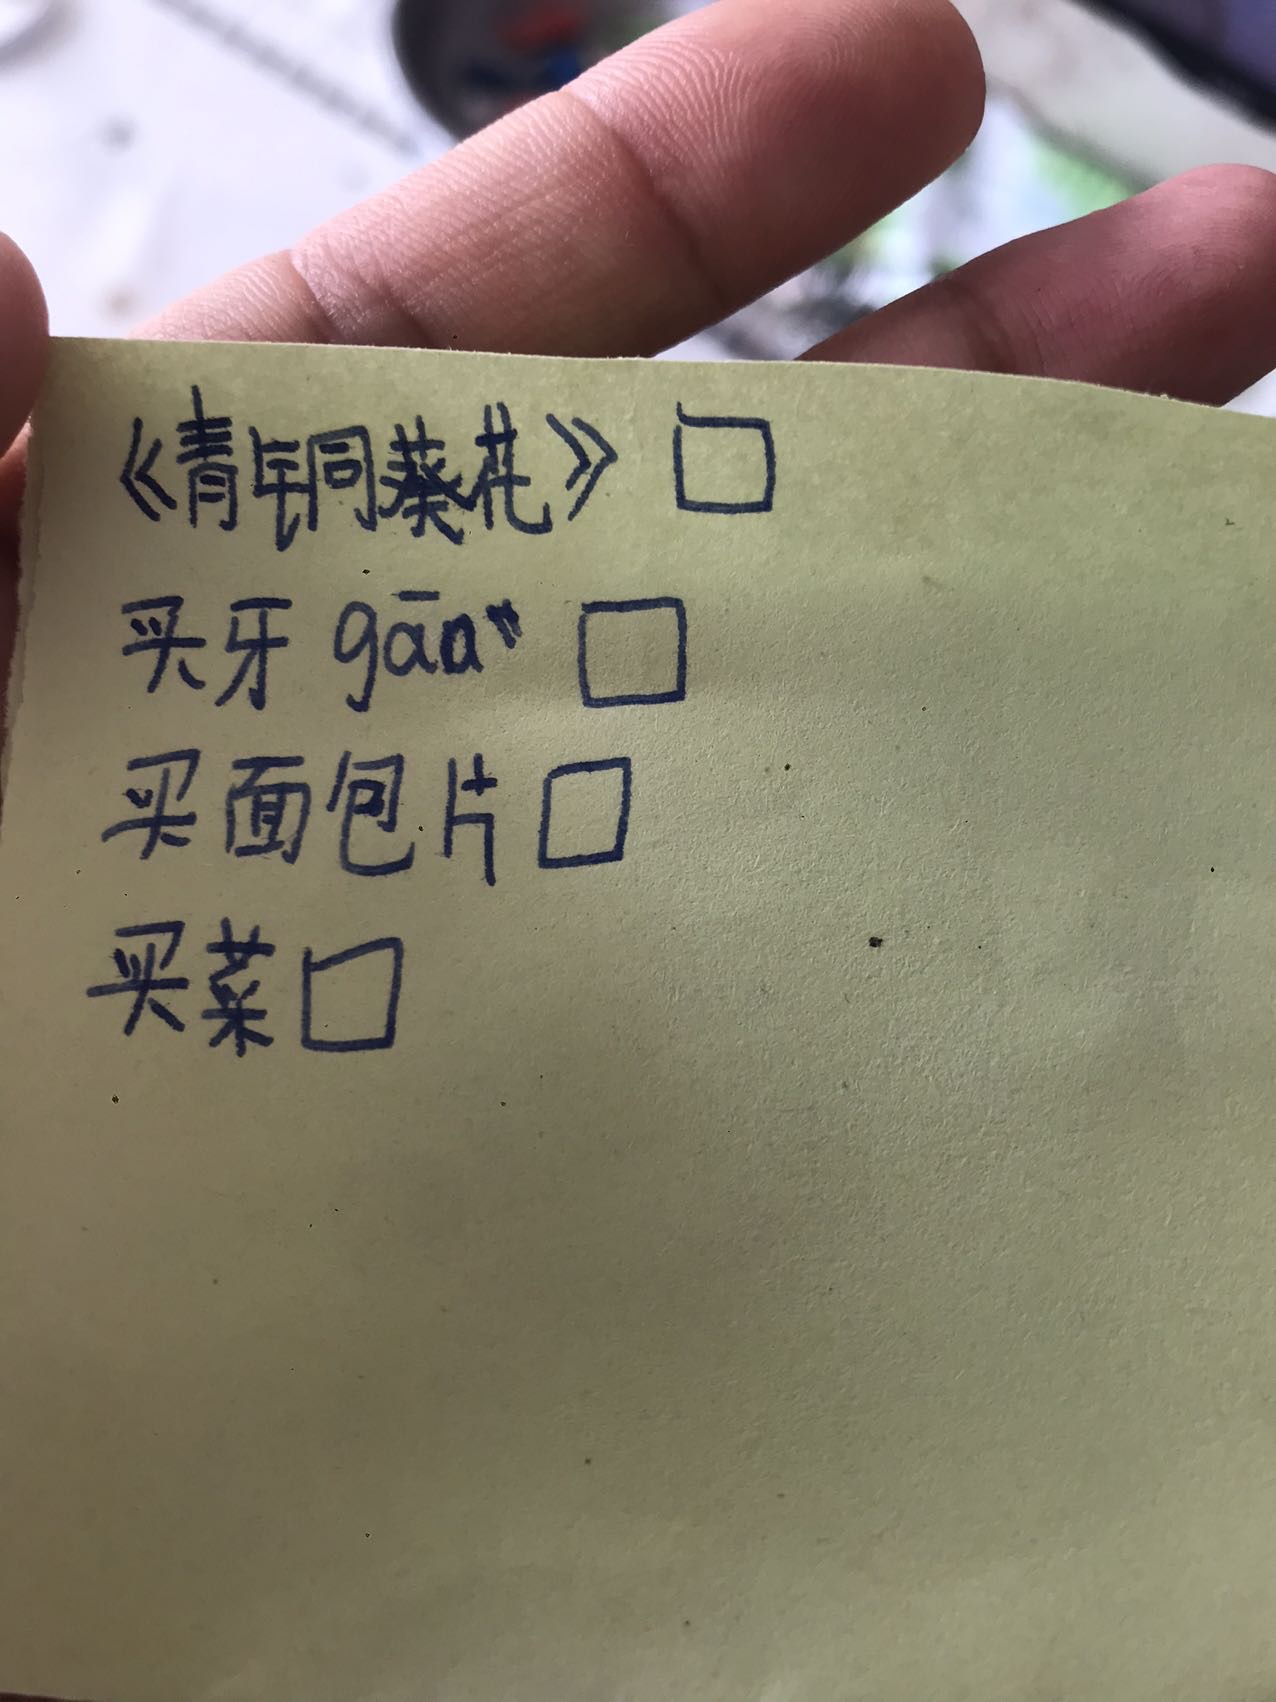 《青铜葵花》 □
买牙 gān □
买面包片 □
买菜 □